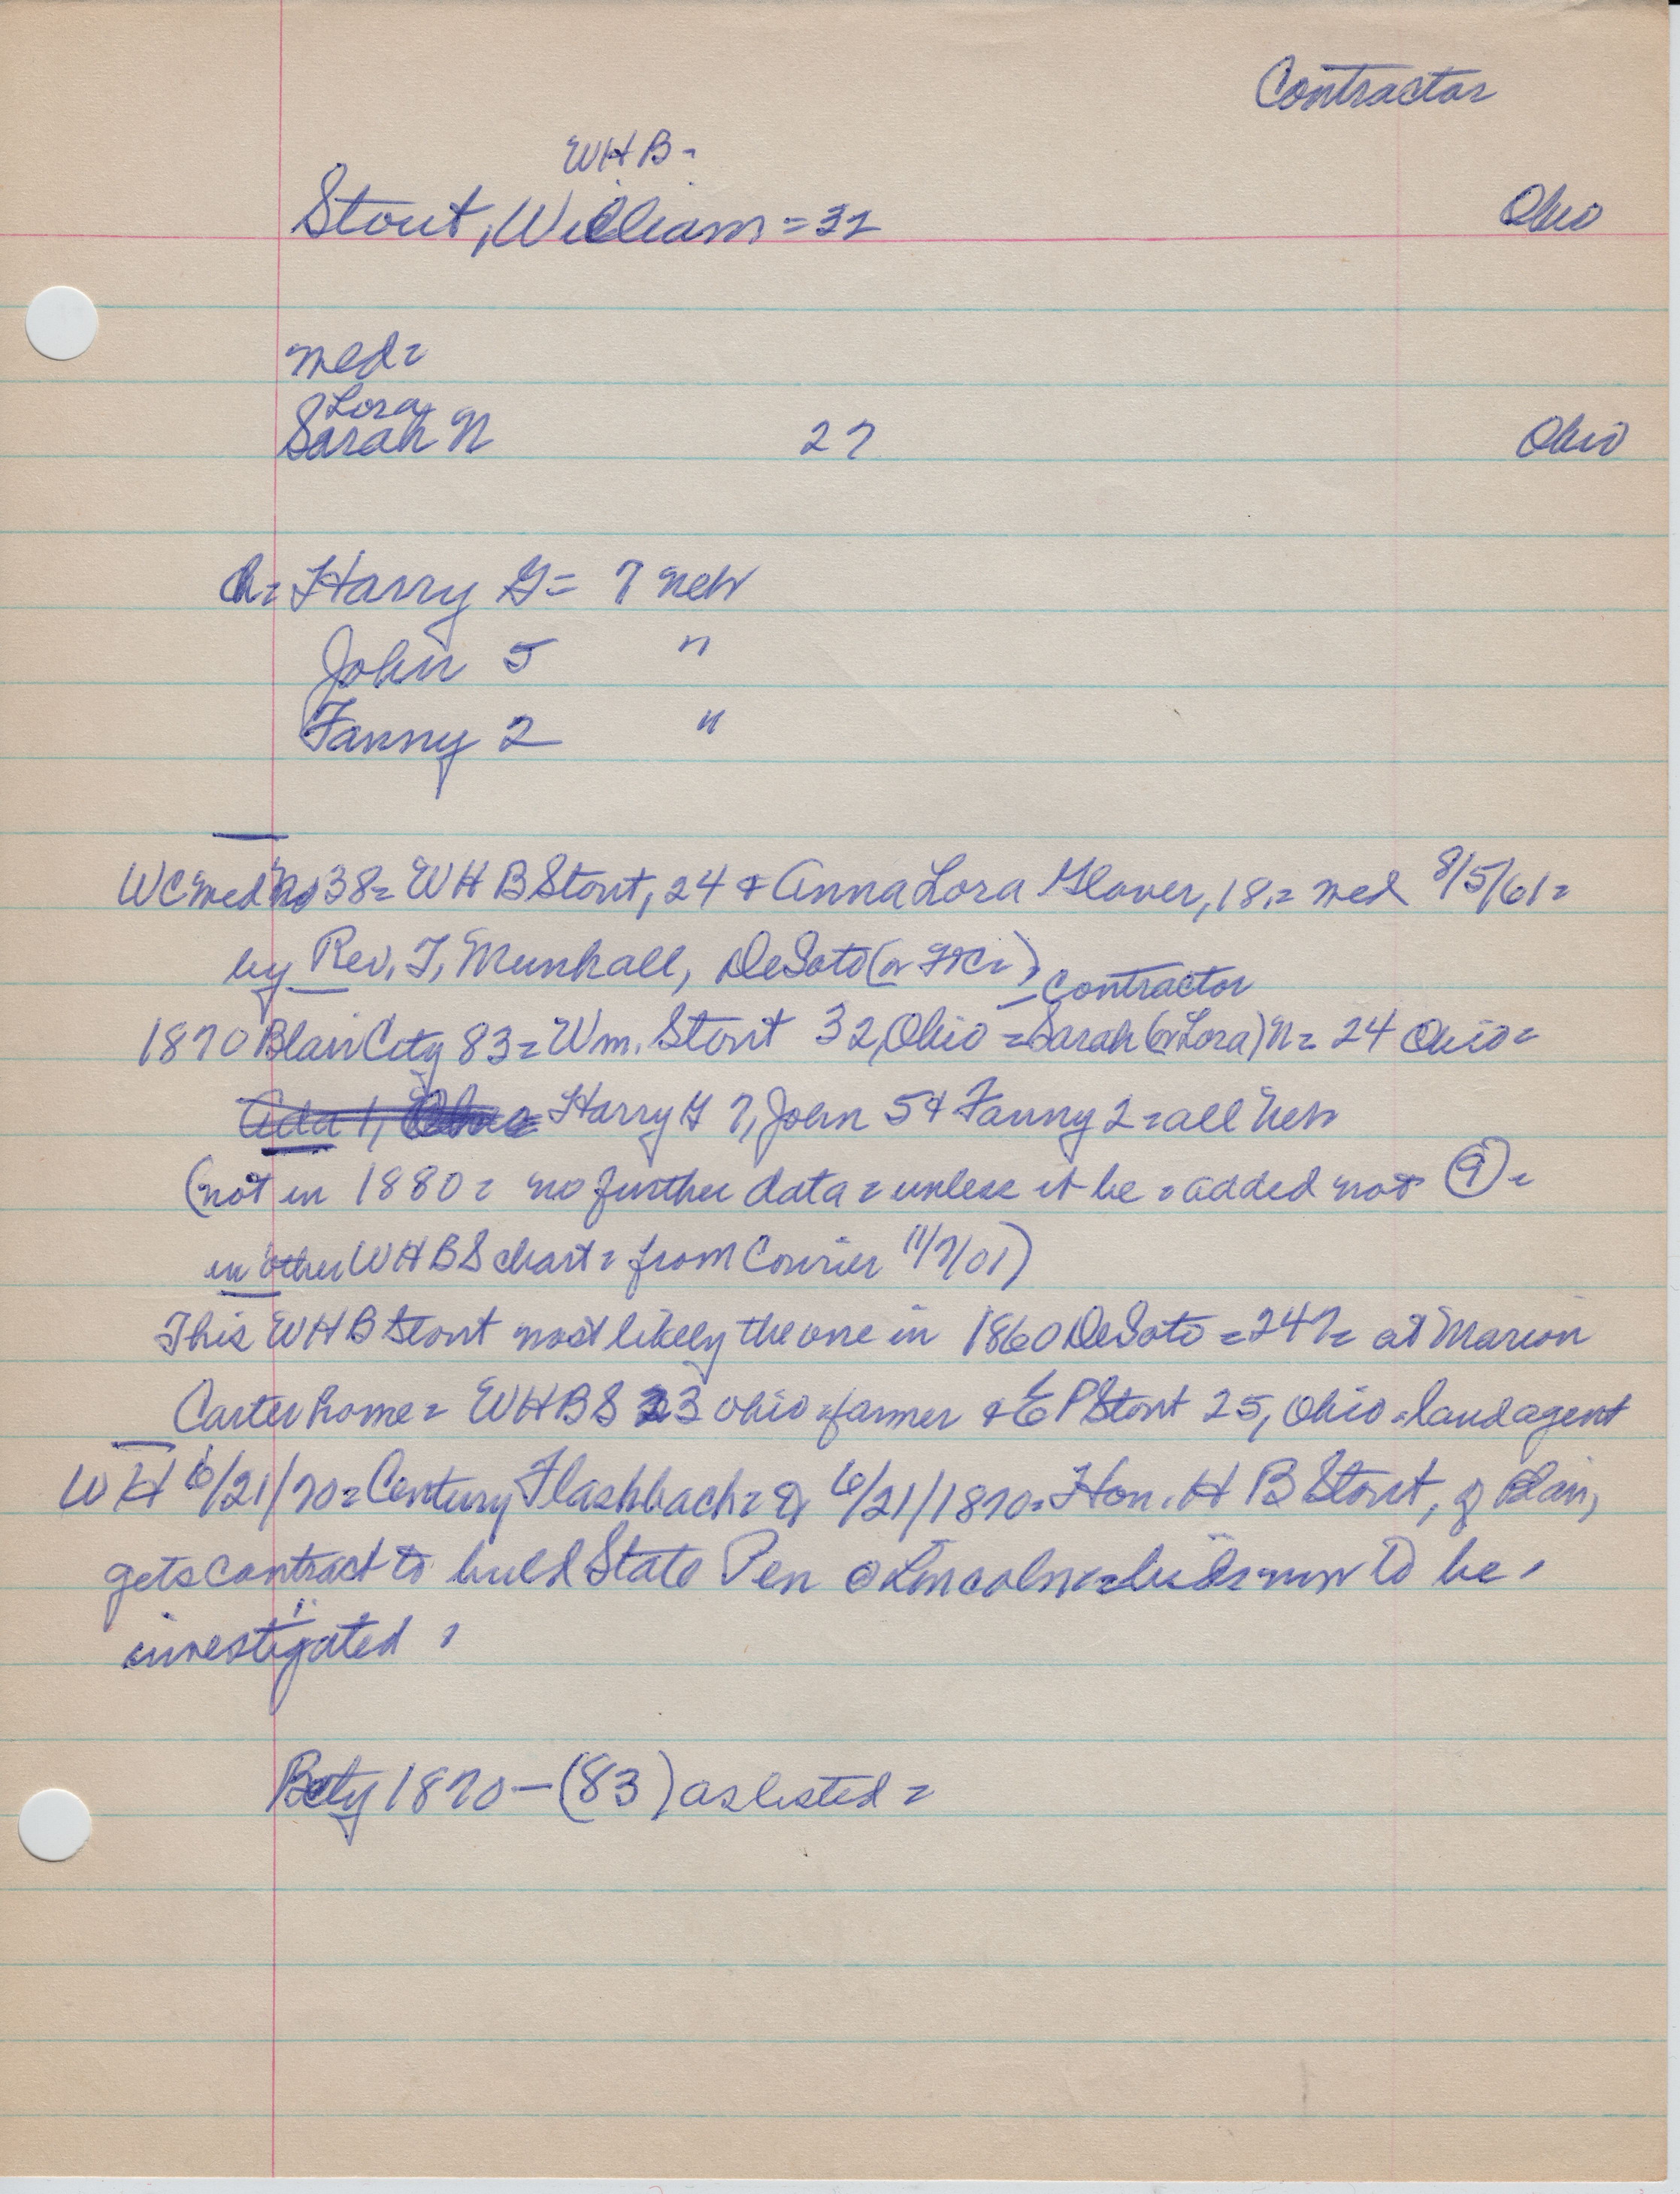 Contractor
WHB-
Stout, William = 32 Ohio
med =
Lora
Sarah N 27 Ohio
ch = Harry G = 7 Neb
John 5 "
Fanny 2 "
WC med No 38 = WHB Stout, 24 & Anna Lora Glover, 18, = med 8/5/61 =
by Rev. T. Munhall, DeSoto (or
- Contractor
1870 Blair City 83 = Wm. Stout 32, Ohio = Sarah (or Lora) N = 24 Ohio =
Ada 1, Harry G 7, John 5 & Fanny 2 = all Neb
(not in 1880 = no further data = unless it be = added not (9) =
in other WHBS chart = from Courier 11/7/01)
This WHB Stout most likely the one in 1860 DeSoto = 247 = at Marion
Carter home = WHBS 23 Ohio = farmer & E P Stout 25, Ohio = land agent
WH 6/21/70 = Century Flashback = 6/21/1870 = Hon. H B Stout, of Blair,
gets contract to build State Pen @ Lincoln = bids now to be
investigated
Bcty 1870 - (83) as listed =